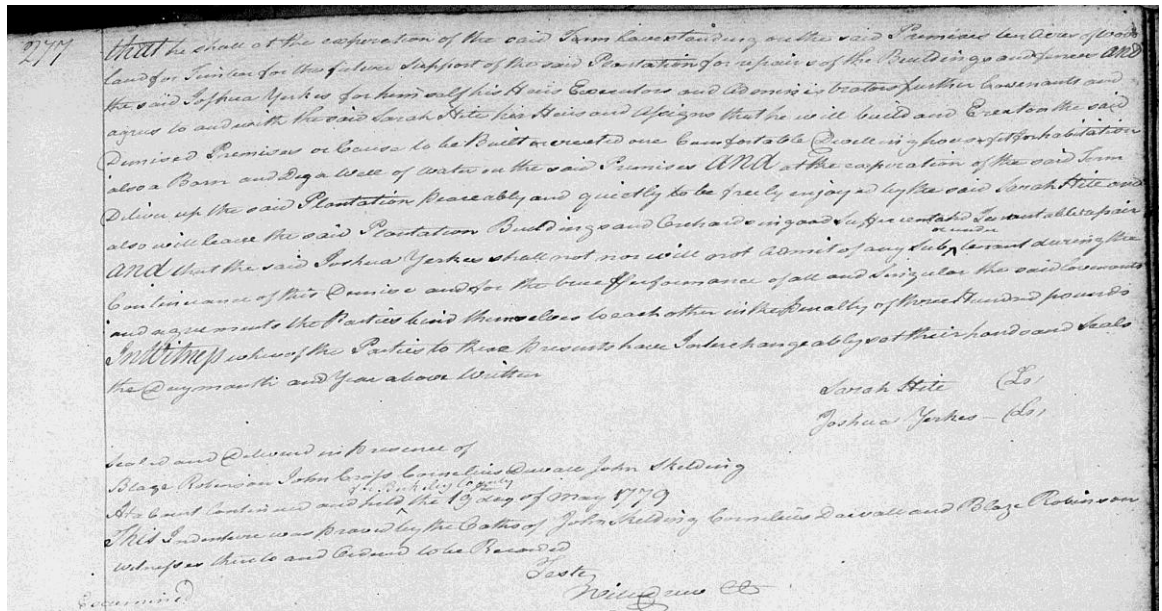 277
that he shall at the experation of the said Term have standing on the said Premises ten Acres of wood
land for Timber for the future Support of the said Plantation for repairs of the Buildings and fences and
the said Joshua Yerkes for him self his Heirs Executors and Administrators further Covenants and
agrees to and with the said Sarah Hite her Heirs and Assigns that he will build and Erect on the said
Demised Premises or Cause to be Built or erected one Comfortable Dwelling house fit for habitation
also a Barn and Dig a Well of Water on the said Premises AND at the experation of the said Term
Deliver up the said Plantation Peaceably and quietly to be freely enjoyed by the said Sarah Hite and
also will leave the said Plantation Buildings and Orchards in good Sufficient and Tenantable repair
AND that the said Joshua Yerkes shall not nor will not Admit of any Sub or under tenant during the
Continuance of this Demise and for the true Performance of all and Singular the said Covenants
and agreements the Parties bind themselves to each other in the Penalty of three Hundred pounds
In Witness whereof the Parties to these presents have Interchangeably set their hands and Seals
the Day month and Year above Written
Sarah Hite (Ls)
Joshua Yerkes (Ls)
Sealed and Delivered in presence of
Blaze Robinson John Cross Cornelius Davall John Skelding
At a Court Continued and held for Berkeley County the 19 day of May 1779
This Indenture was proved by the Oaths of John Skelding Cornelius Davall and Blaze Robinson
witnesses thereto and Ordered to be Recorded
Teste
Will Drew CC
Examined